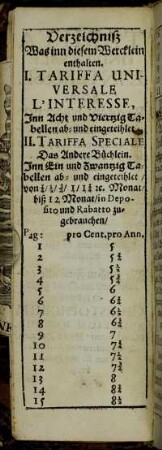 Verzeichniß
Was inn diesem Wercklein
enthalten.
I. TARIFFA UNI-
VERSALE
L'INTERESSE,
Inn Acht und Vierzig Ta-
bellen ab- und eingetheilet
II. TARIFFA SPECIALE
Das Andere Büchlein.
Inn Ein und Zwantzig Ta-
bellen ab- und eingetheilet/
von ¼/ ½/ ¾/ 1/ 1¼ ꝛc. Monat/
biß 12 Monat/in Depo-
sito und Rabatto zu-
gebrauchen/
Pag: pro Cent. pro Ann.
1 5
2 5¼
3 5½
4 5¾
5 6
6 6¼
7 6½
8 6¾
9 7
10 7¼
11 7½
12 7¾
13 8
14 8¼
15 8½